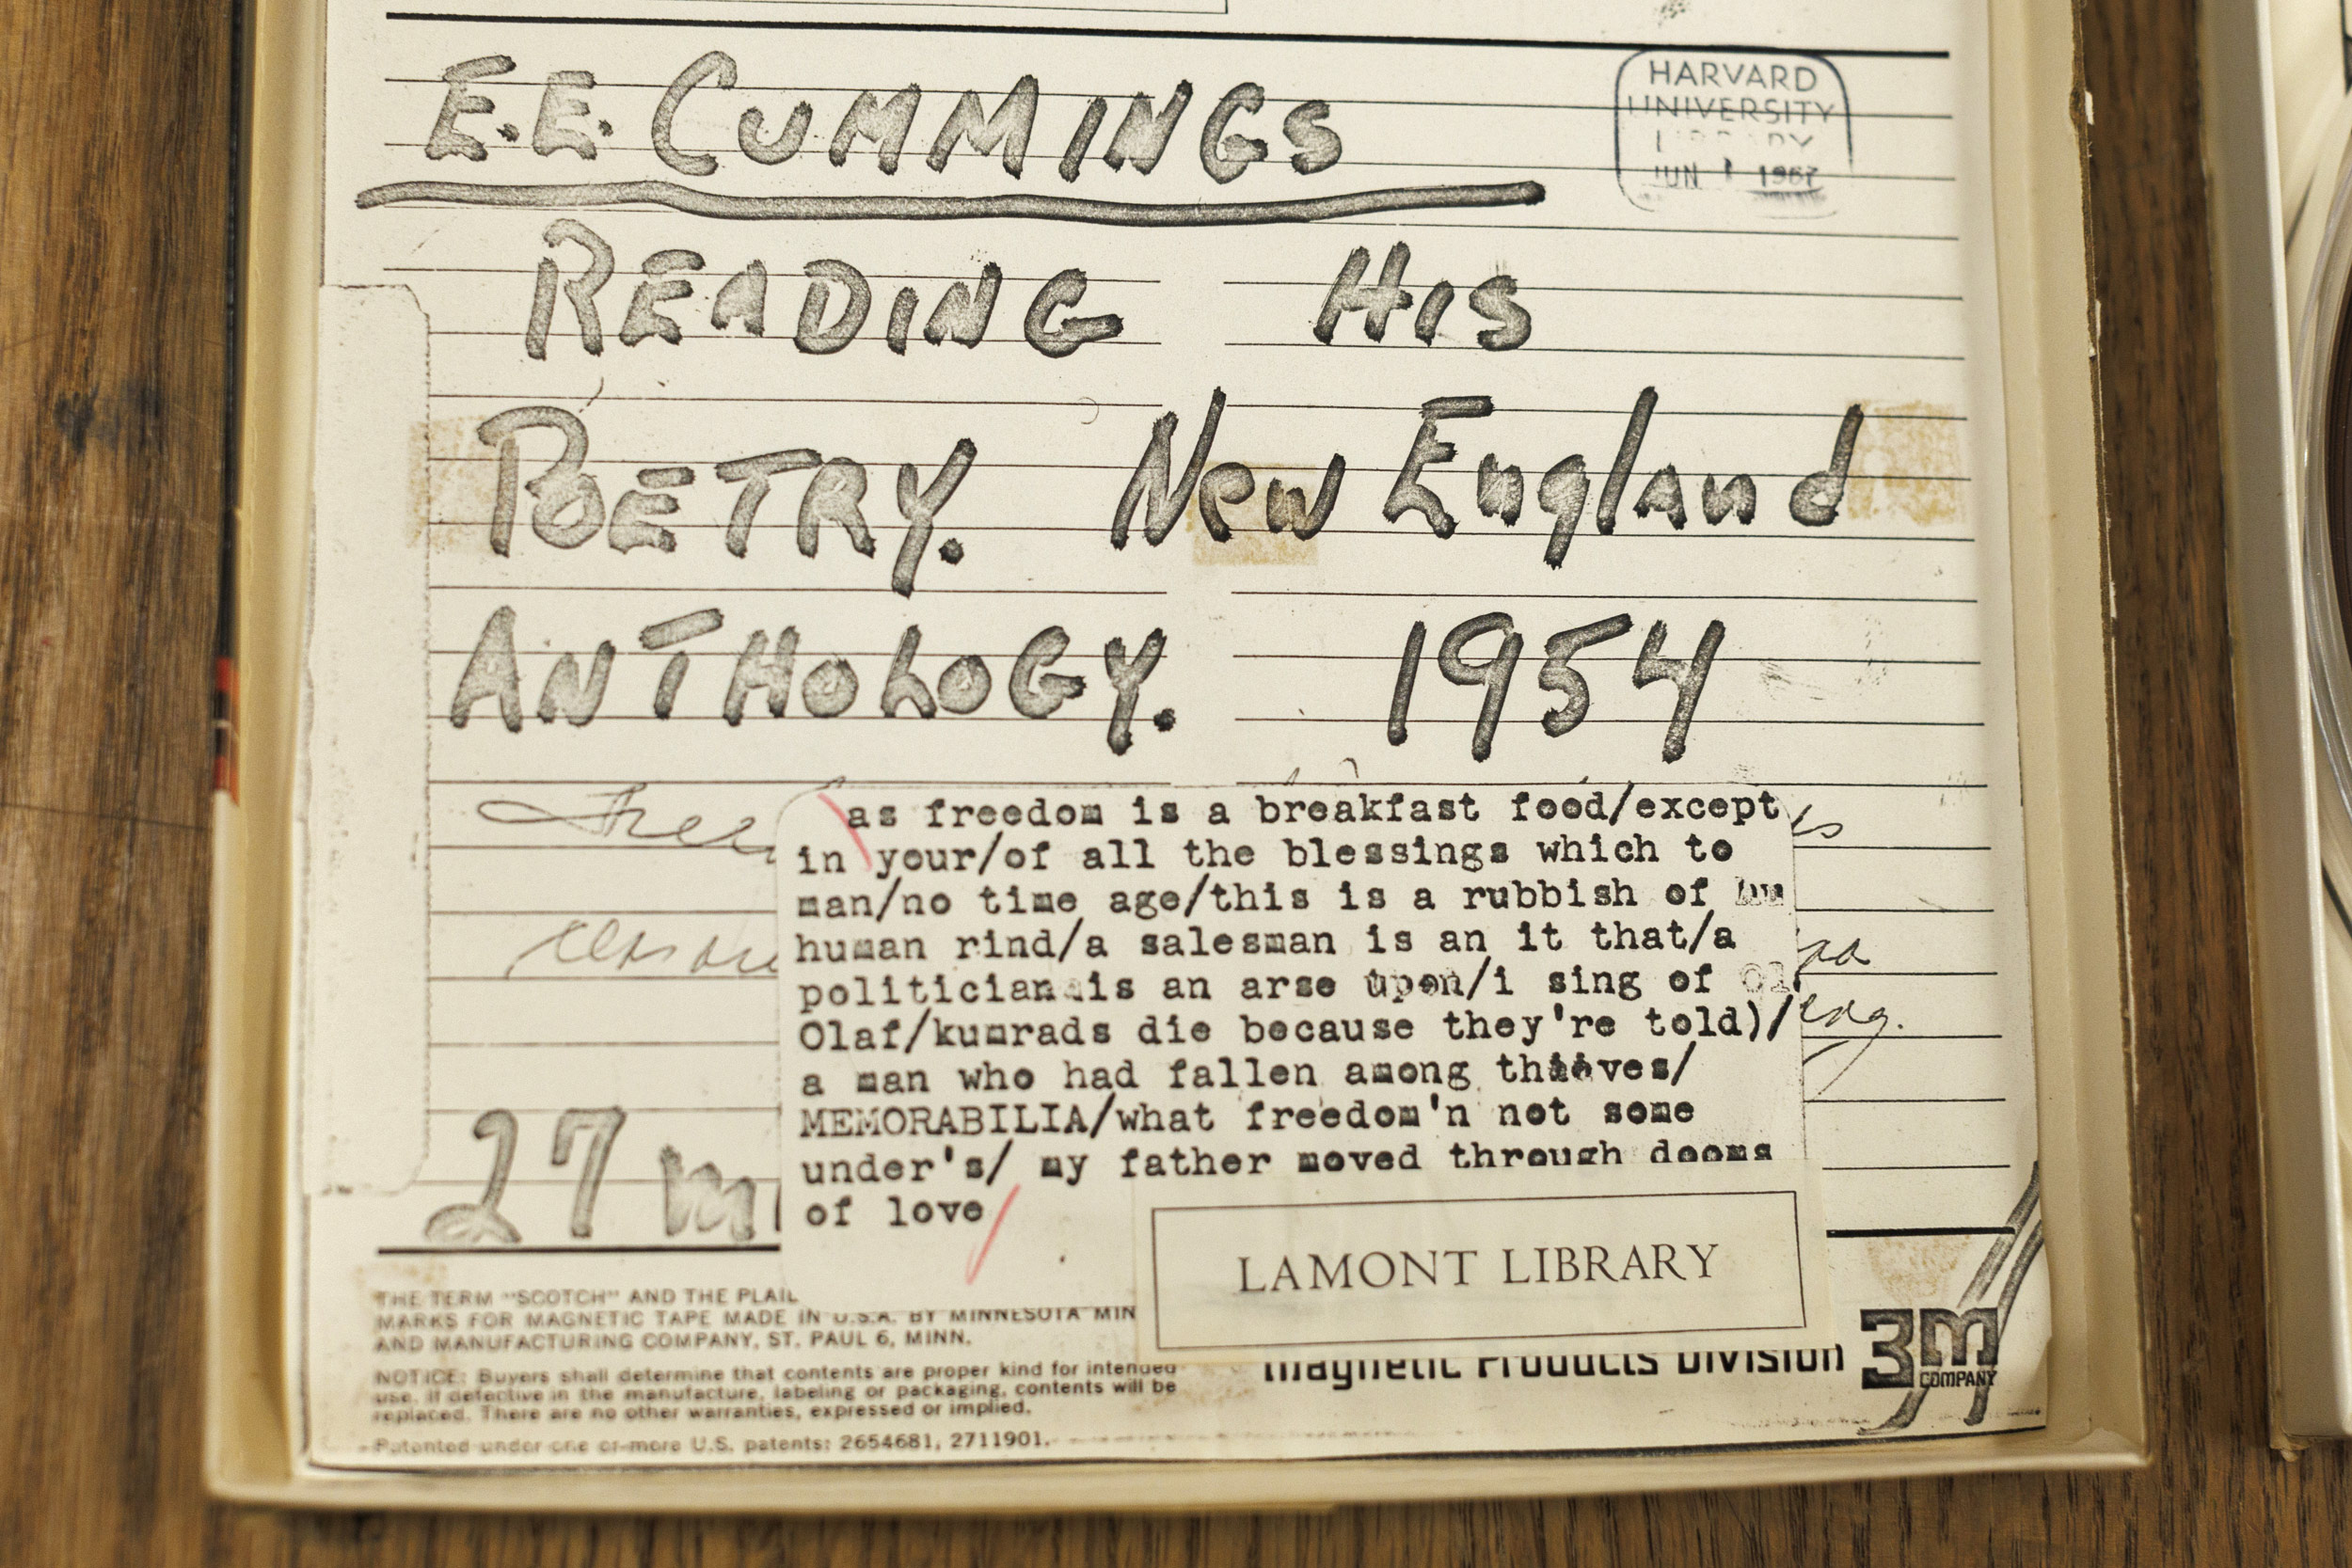 E.E. CUMMINGS
HARVARD
UNIVERSITY
JUN 1 1967
READING HIS
POETRY. New England
ANTHOLOGY. 1954
as freedom is a breakfast food/except
in your/of all the blessings which to
man/no time age/this is a rubbish of
human rind/a salesman is an it that/a
politician is an arse upon/i sing of Ol
Olaf/kumrads die because they're told)/
a man who had fallen among thieves/
MEMORABILIA/what freedom'n not some
under's/ my father moved through dooms
of love/
27 m
LAMONT LIBRARY
THE TERM "SCOTCH" AND THE PLAI
MARKS FOR MAGNETIC TAPE MADE IN U.S.A. BY MINNESOTA MIN
AND MANUFACTURING COMPANY, ST. PAUL 6, MINN.
NOTICE: Buyers shall determine that contents are proper kind for intended
use. If defective in the manufacture, labeling or packaging, contents will be
replaced. There are no other warranties, expressed or implied.
Patented under one or more U.S. patents: 2654681, 2711901.
Magnetic Products Division 3M
COMPANY